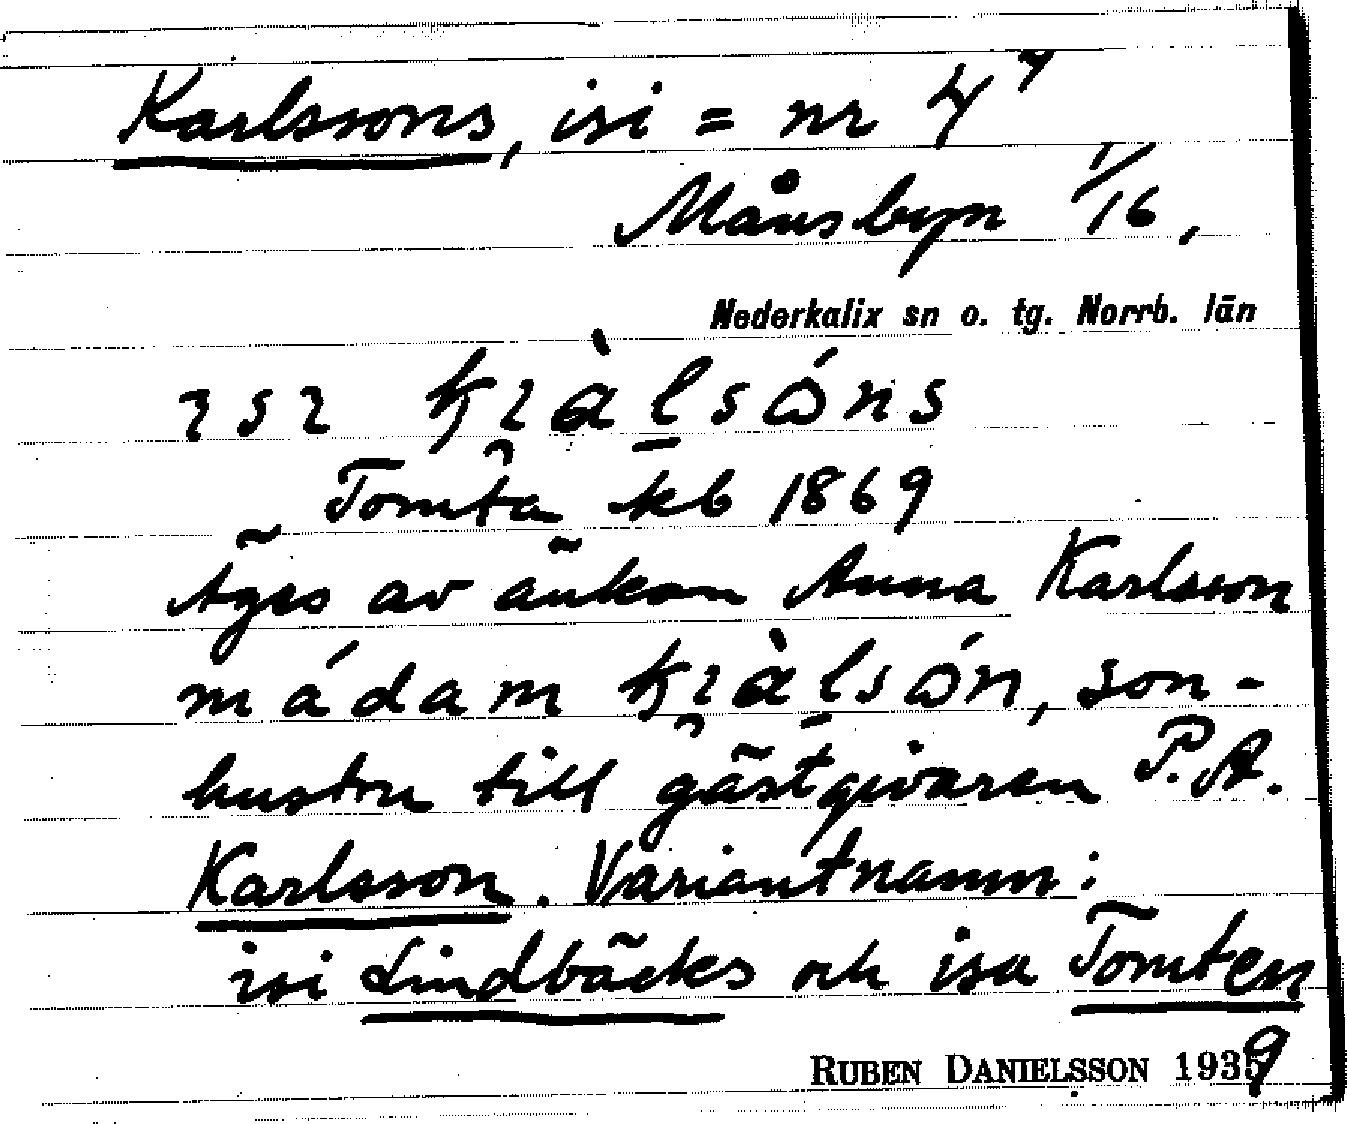 Karlssons, isi = nr 4⁴
Månsbyn 1/16,
Nederkalix sn o. tg. Norrb. län
ısı kıàlsóns
Tomta kb 1869
Äges av änkan Anna Karlsson
mádam kıàlsón, son-
hustru till gästgivaren P. A.
Karlsson. Variantnamn:
isi Lindbäcks och isa Tomten
RUBEN DANIELSSON 1939